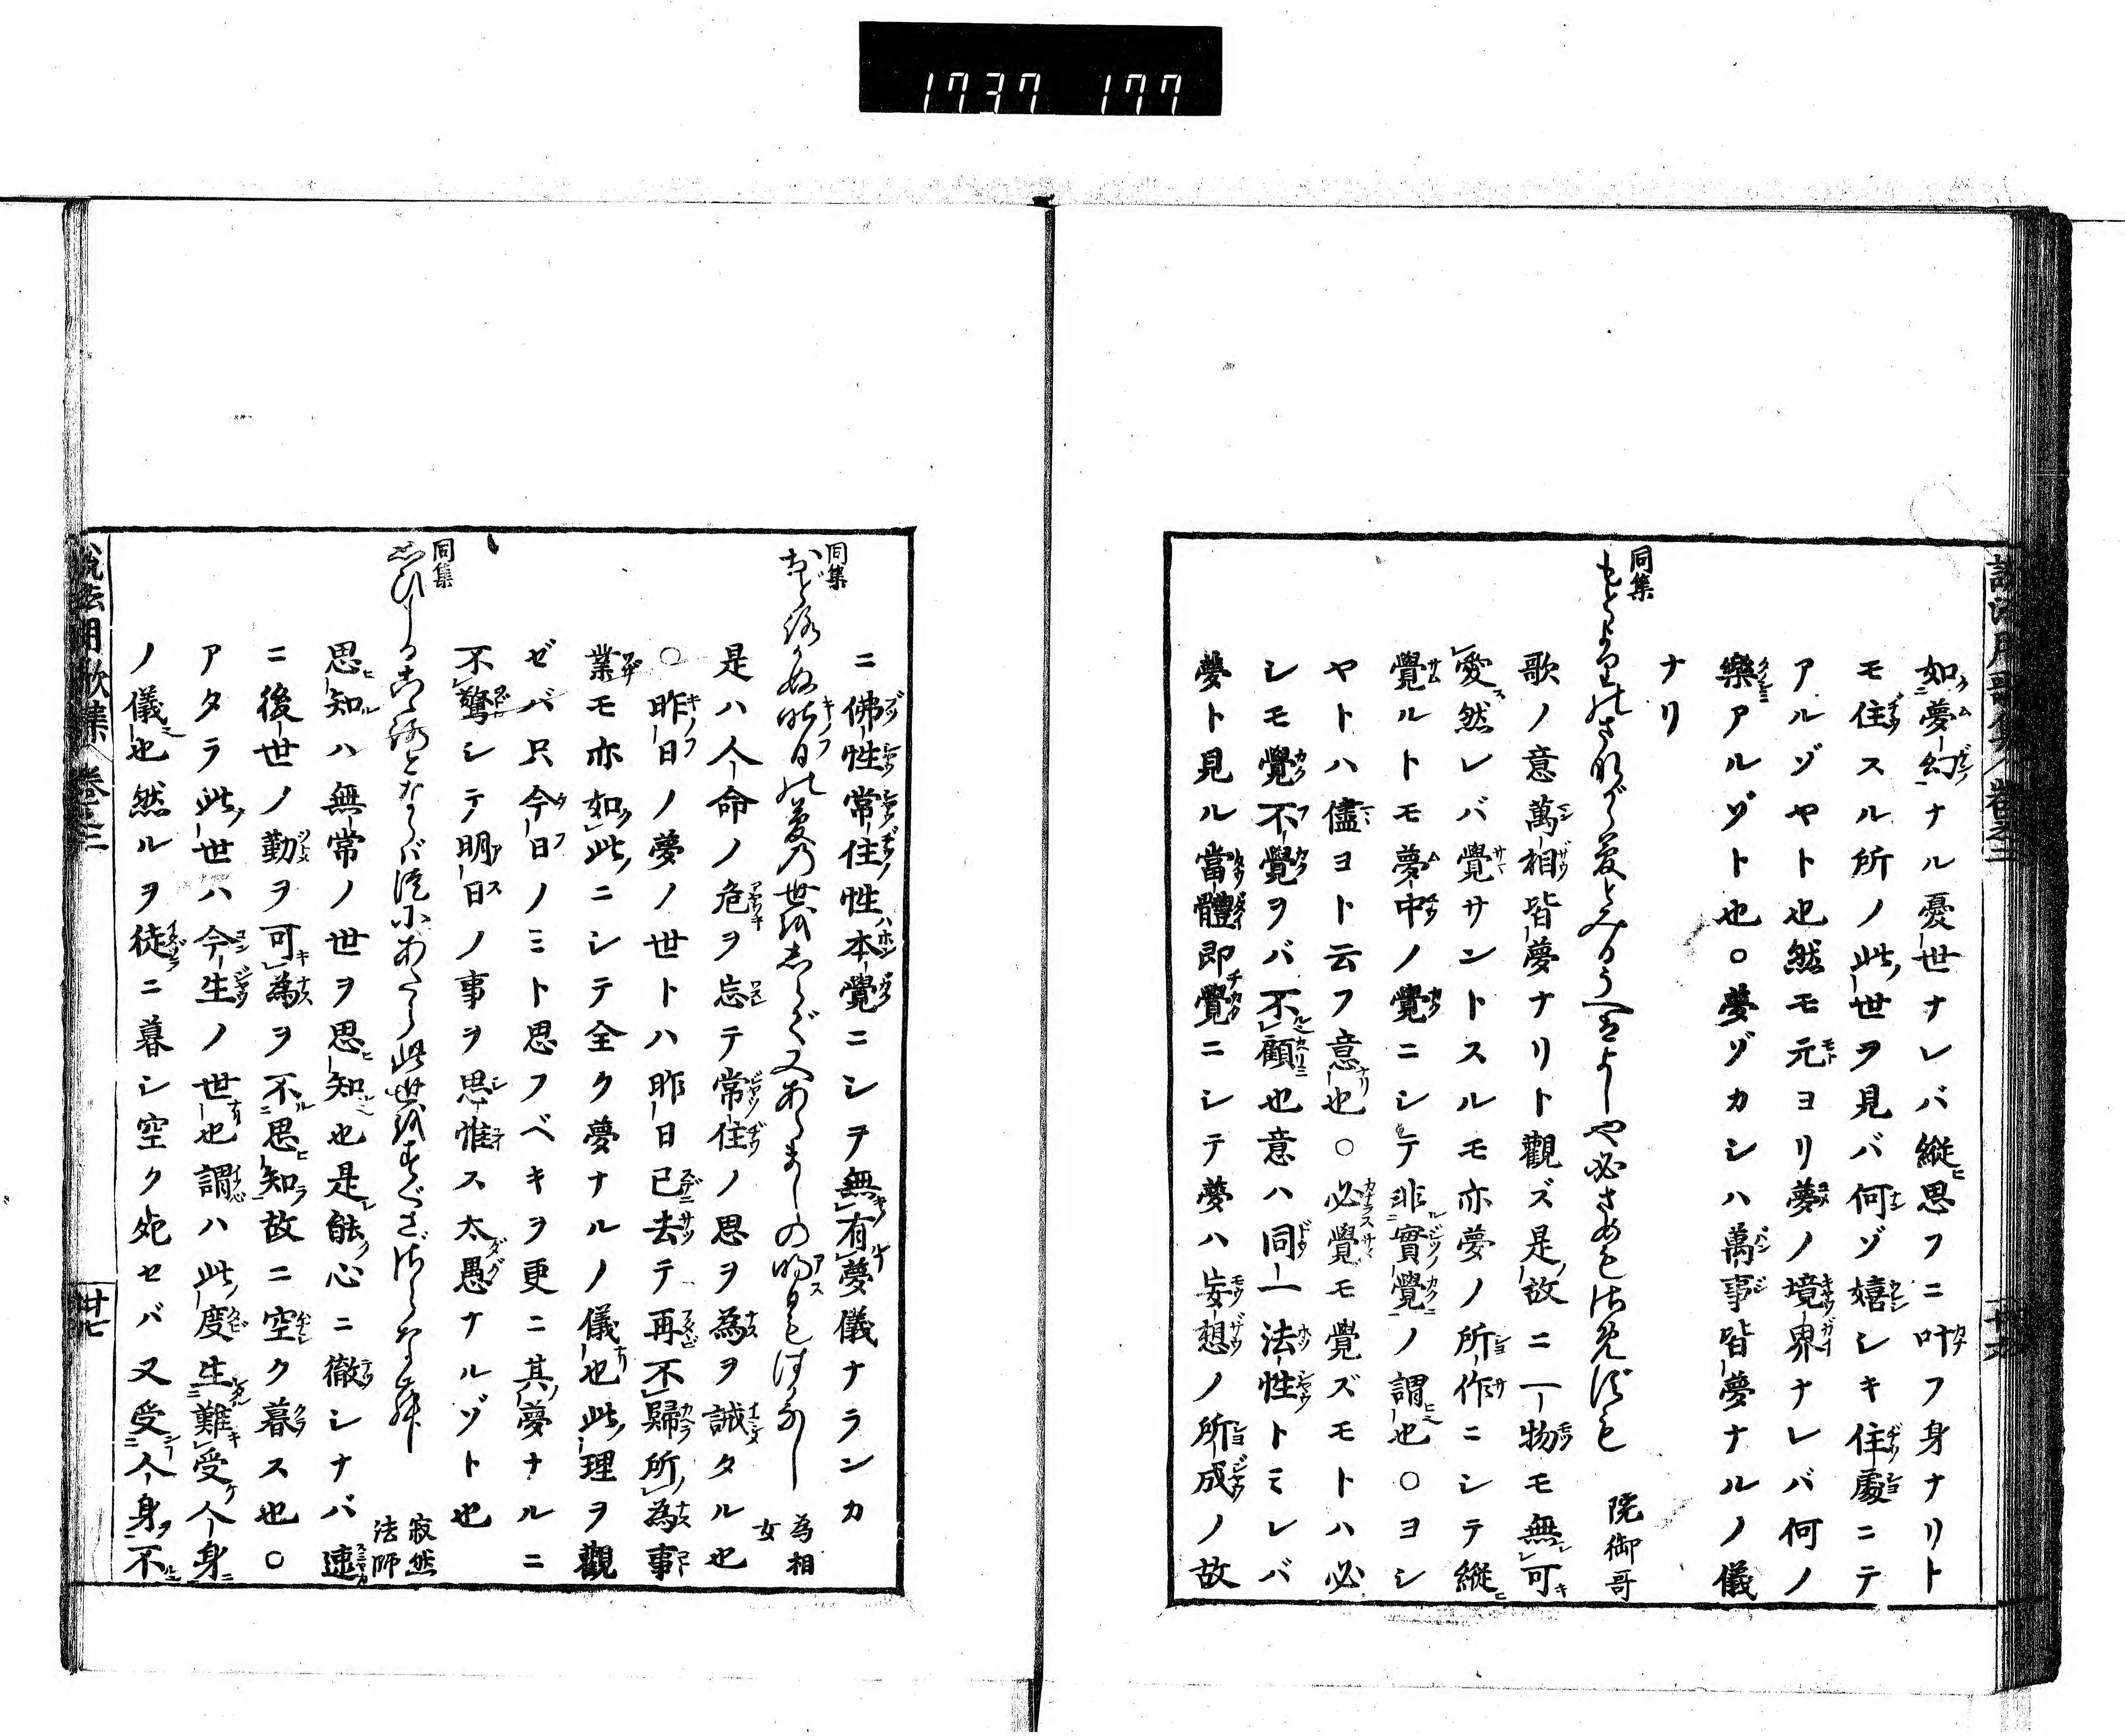 1737 177
如夢幻ナル憂世ナレバ縦思フニ叶フ身ナリト
モ住スル所ノ此世ヲ見バ何ゾ嬉シキ住處ニテ
アルゾヤト也然モ元ヨリ夢ノ境界ナレバ何ノ
樂アルゾト也○夢ゾカシハ萬事皆夢ナルノ儀
ナリ
同集
院御哥
歌ノ意萬相皆夢ナリト觀ズ是故ニ一物モ無可
愛然レバ覺サントスルモ亦夢ノ所作ニシテ縦
覺ルトモ夢中ノ覺ニシテ非實覺ノ謂也○ヨシ
ヤトハ儘ヨト云フ意也○必覺モ覺ズモトハ必
シモ覺不覺ヲバ不顧也意ハ同一法性トミレバ
夢ト見ル當體即覺ニシテ夢ハ妄想ノ所成ノ故
ニ佛性常住性本覺ニシヲ無有夢儀ナランカ
同集
おどろかぬ昨日の夢の世をしらで又あらましの明日もはかなし
為相女
是ハ人命ノ危ヲ忘テ常住ノ思ヲ為ヲ誡タル也
○昨日ノ夢ノ世トハ昨日已去テ再不歸所為事
業モ亦如此ニシテ全ク夢ナルノ儀也此理ヲ觀
ゼバ只今日ノミト思フベキヲ更ニ其夢ナルニ
不驚シテ明日ノ事ヲ思惟ス太愚ナルゾト也
同集
寂然法師
思知ハ無常ノ世ヲ思知也是能心ニ徹シナバ速
ニ後世ノ勤ヲ可為ヲ不思知故ニ空ク暮ス也○
アタラ此世ハ今生ノ世也謂ハ此度生難受人身
ノ儀也然ルヲ徒ニ暮シ空ク死セバ又受人身不
説法用歌集 巻之二
廿七